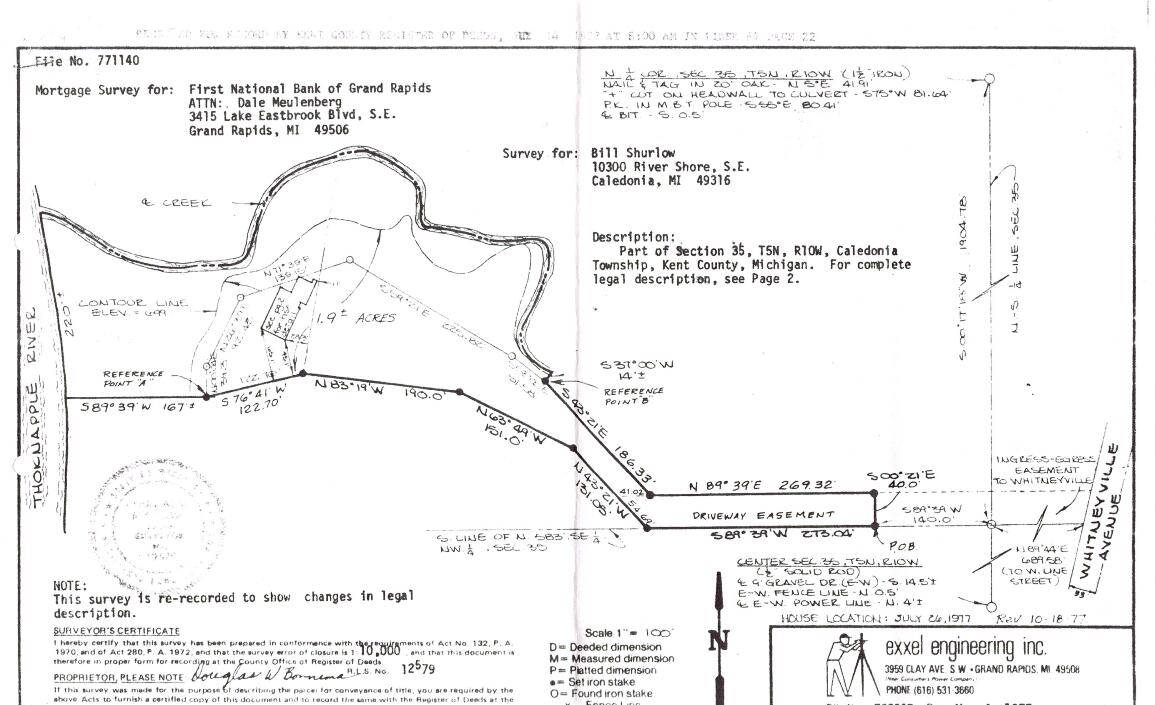 RECEIVED FOR RECORD BY KENT COUNTY REGISTER OF DEEDS, 14 1977 AT 8:00 AM IN LIBER 64 PAGE 22
File No. 771140
Mortgage Survey for: First National Bank of Grand Rapids
ATTN: Dale Meulenberg
3415 Lake Eastbrook Blvd, S.E.
Grand Rapids, MI 49506
N ¼ COR, SEC 35, T5N, R10W (1½" IRON)
NAIL & TAG IN 20" OAK - N 5° E 41.91'
"+" CUT ON HEADWALL TO CULVERT - S75°W 81.64'
P.K. IN M.B.T. POLE - S55°E 80.41'
℄ BIT. - S. 0.5'
Survey for: Bill Shurlow
10300 River Shore, S.E.
Caledonia, MI 49316
Description:
Part of Section 35, T5N, R10W, Caledonia
Township, Kent County, Michigan. For complete
legal description, see Page 2.
℄ CREEK
CONTOUR LINE
ELEV. = 699
1.9± ACRES
THORNAPPLE RIVER
220'±
REFERENCE
POINT "A"
S89°39'W 167'±
S76°41'W
122.70'
N83°19'W 190.0'
N63°49'W
151.0'
N43°21'W
131.08'
S37°00'W
14'±
REFERENCE
POINT "B"
S43°21'E 186.33'
41.02
54.69
N 89°39'E 269.32'
S00°21'E
40.0'
DRIVEWAY EASEMENT
S89°39'W 273.04'
S89°39'W
140.0'
P.O.B.
S. LINE OF N 583' SE ¼
NW ¼, SEC 35
S00°17'15"W 1904.78
N-S ¼ LINE, SEC 35
INGRESS-EGRESS
EASEMENT
TO WHITNEYVILLE
WHITNEYVILLE
AVENUE
33
N89°44'E
689.58'
(TO W. LINE
STREET)
CENTER SEC 35, T5N, R10W
(½" SOLID ROD)
℄ 9' GRAVEL DR (E-W) - S. 14.5'±
E-W. FENCE LINE - N 0.5'
℄ E-W. POWER LINE - N. 4'±
HOUSE LOCATION: JULY 26, 1977 Rev 10-18-77
NOTE:
This survey is re-recorded to show changes in legal
description.
SURVEYOR'S CERTIFICATE
I hereby certify that this survey has been prepared in conformance with the requirements of Act No. 132, P. A.
1970, and of Act 280, P. A. 1972, and that the survey error of closure is 1: 10,000, and that this document is
therefore in proper form for recording at the County Office of Register of Deeds.
PROPRIETOR, PLEASE NOTE Douglas W Bonnema R.L.S. No. 12579
If this survey was made for the purpose of describing the parcel for conveyance of title, you are required by the
above Acts to furnish a certified copy of this document and to record the same with the Register of Deeds at the
Scale 1" = 100'
D = Deeded dimension
M = Measured dimension
P = Platted dimension
● = Set iron stake
O = Found iron stake
x Fence Line
N
exxel engineering inc.
3959 CLAY AVE. S.W. • GRAND RAPIDS, MI 49508
(Near Consumers Power Company)
PHONE (616) 531-3660